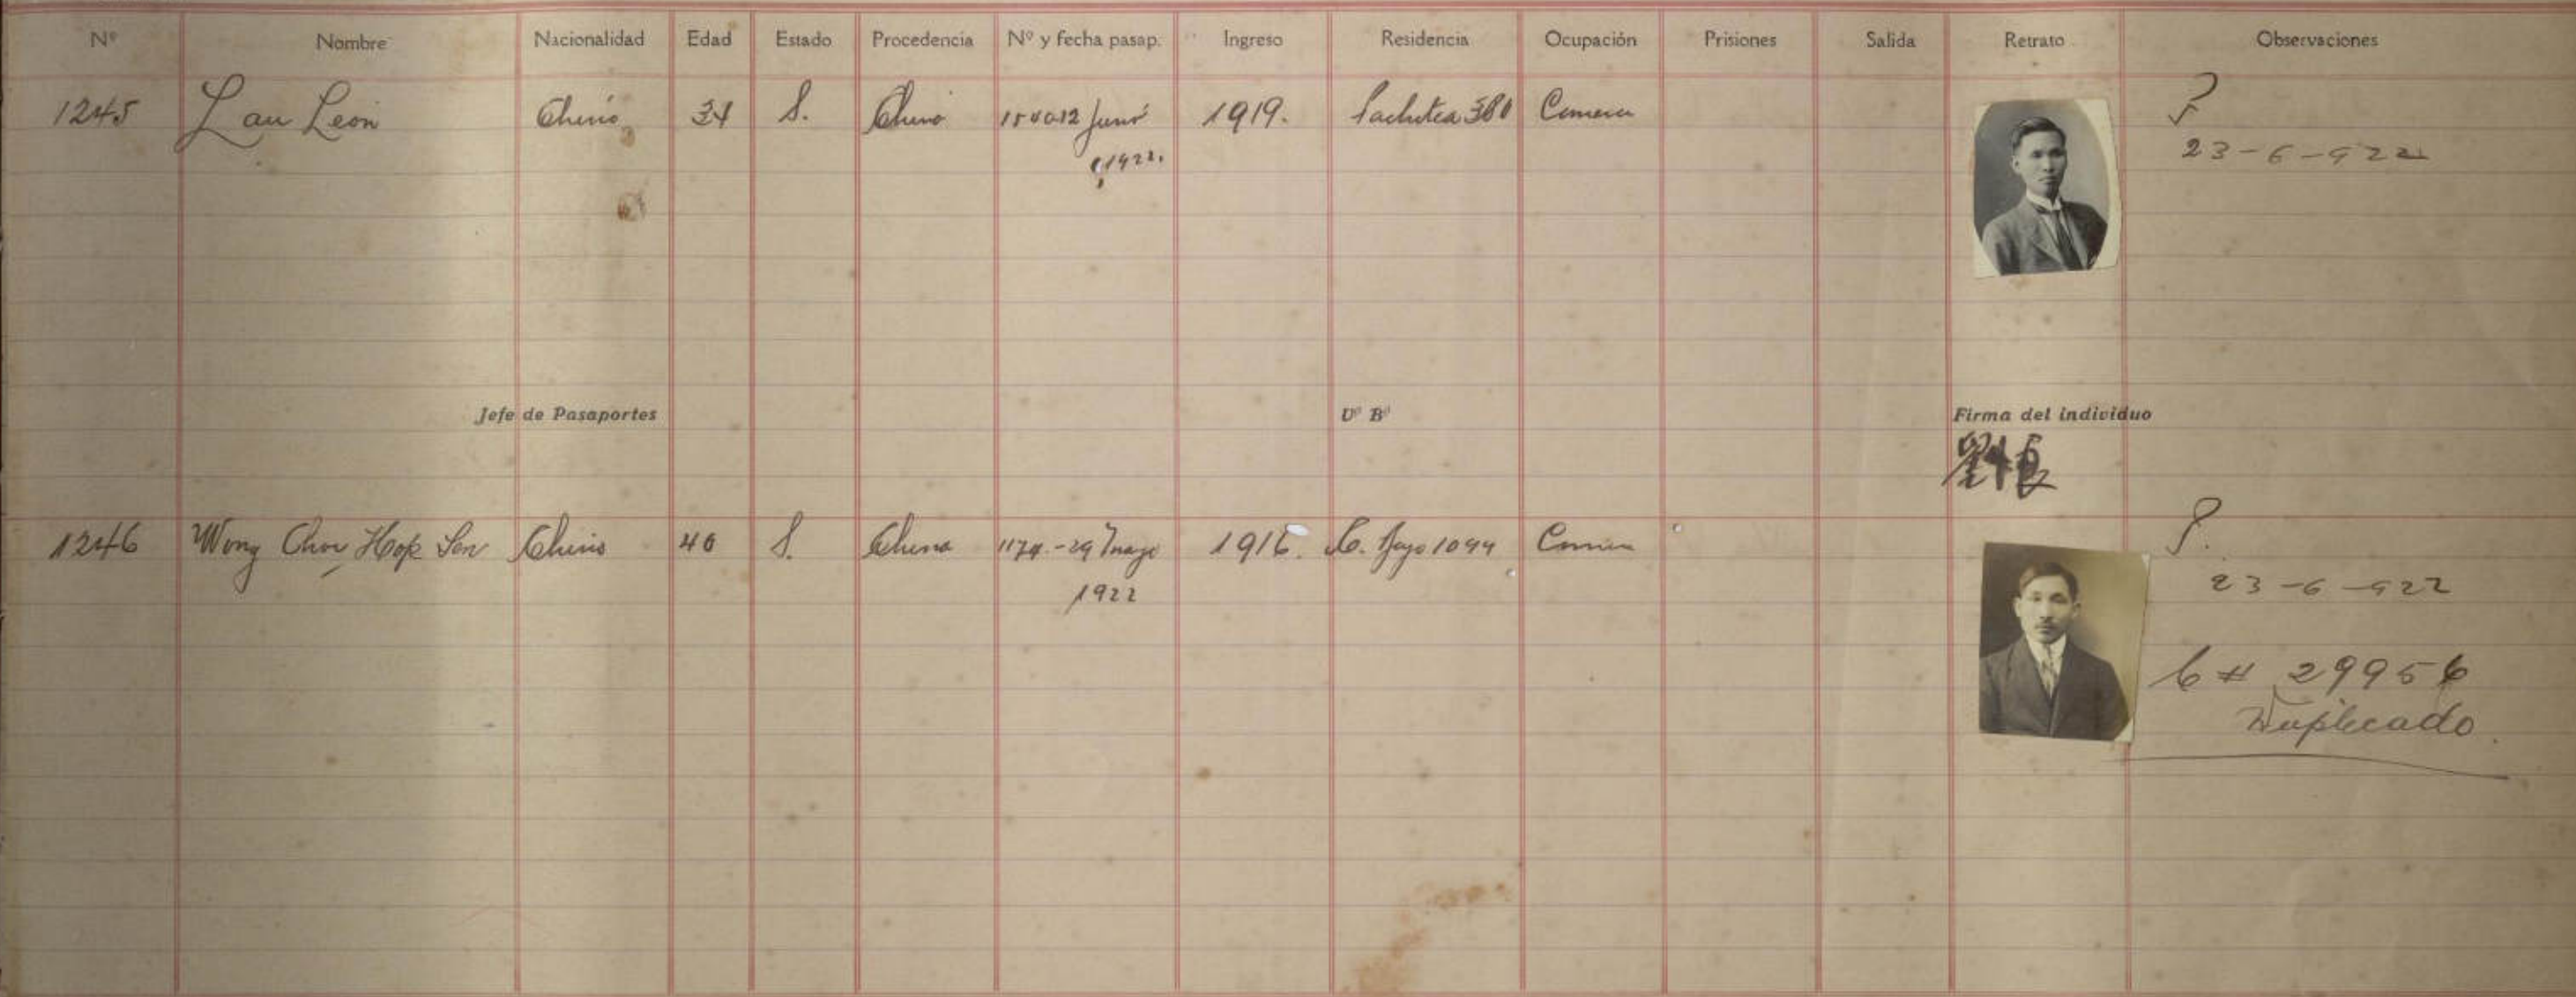 Nº Nombre Nacionalidad Edad Estado Procedencia Nº y fecha pasap. Ingreso Residencia Ocupación Prisiones Salida Retrato Observaciones
1245 Lau León Chino S. China 1919. Pachitea 380
1922.
23-6-922
Jefe de Pasaportes Vº Bº Firma del individuo
劉
1246 Wong Chon Hop Sen Chino 40 S. China 1174.-29 Mayo 1916.
1922
23-6-922
29956
Duplicado.